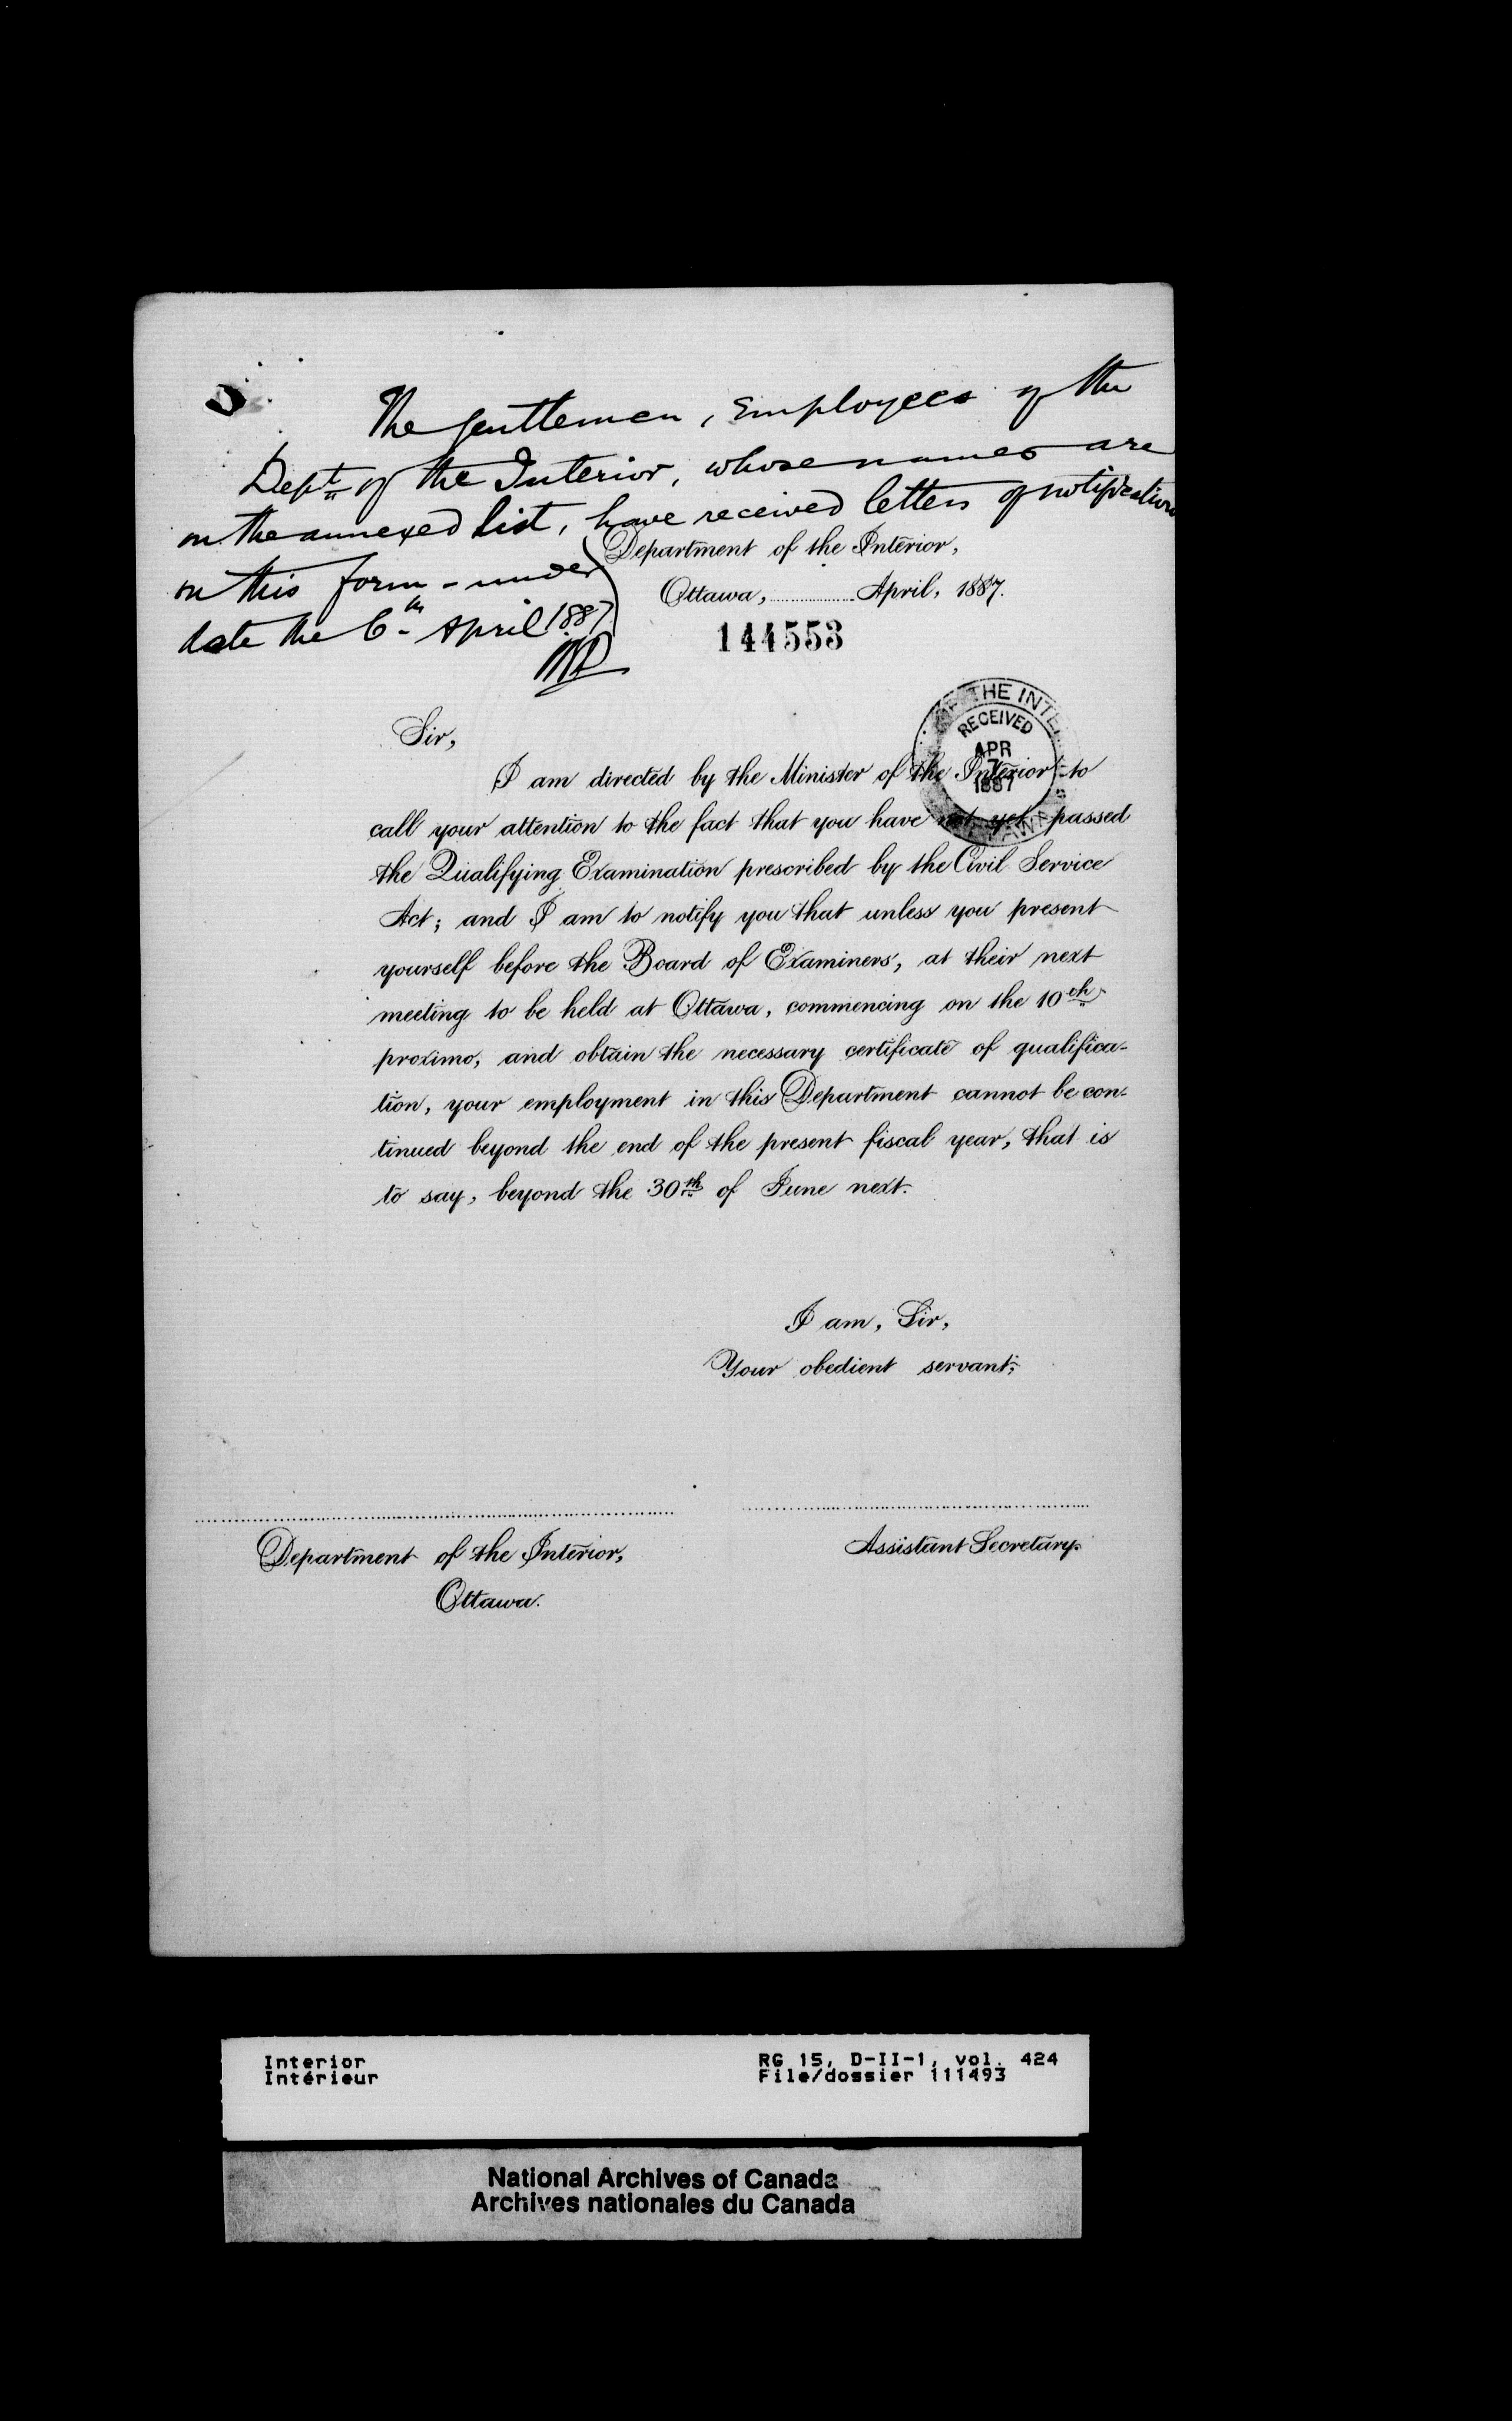 The Gentlemen, Employees of the
Dept. of the Interior, whose names are
on the annexed list, have received letters of notification
on this form - under
date the 6th April 1887.
Department of the Interior,
Ottawa, .................. April, 1887.
144553
THE INTE
RECEIVED
APR
7
1887
Sir,
I am directed by the Minister of the Interior to
call your attention to the fact that you have not yet passed
the Qualifying Examination prescribed by the Civil Service
Act; and I am to notify you that unless you present
yourself before the Board of Examiners, at their next
meeting to be held at Ottawa, commencing on the 10th
proximo, and obtain the necessary certificate of qualifica-
tion, your employment in this Department cannot be con-
tinued beyond the end of the present fiscal year, that is
to say, beyond the 30th of June next.
I am, Sir,
Your obedient servant,
Assistant Secretary.
Department of the Interior,
Ottawa.
Interior RG 15, D-II-1, vol. 424
Intérieur File/dossier 111493
National Archives of Canada
Archives nationales du Canada